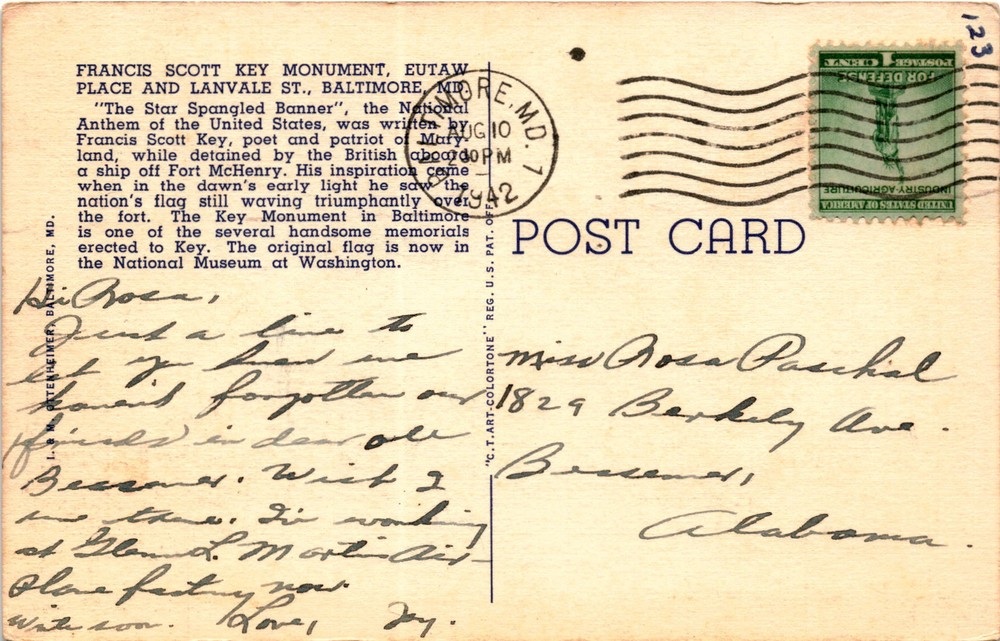 FRANCIS SCOTT KEY MONUMENT, EUTAW
PLACE AND LANVALE ST., BALTIMORE, MD.
"The Star Spangled Banner", the National
Anthem of the United States, was written by
Francis Scott Key, poet and patriot of Mary-
land, while detained by the British aboard
a ship off Fort McHenry. His inspiration came
when in the dawn's early light he saw the
nation's flag still waving triumphantly over
the fort. The Key Monument in Baltimore
is one of the several handsome memorials
erected to Key. The original flag is now in
the National Museum at Washington.
I. & M. OTTENHEIMER, BALTIMORE, MD.
Hi Rosa,
Just a line to
let you know we
haven't forgotten our
friends in dear ole
Bessemer. Wish I
was there. I'm working
at Glenn L. Martin Air-
plane factory now
Write soon. Love,
"C.T. ART-COLORTONE" REG. U.S. PAT. OFF.
BALTIMORE, MD. 1
AUG 10
2 30 PM
1942
123
1 CENT
POSTAGE
FOR DEFENSE
INDUSTRY-AGRICULTURE
UNITED STATES OF AMERICA
POST CARD
Miss Rosa Paschal
1829 Berkely Ave.
Bessemer,
Alabama.